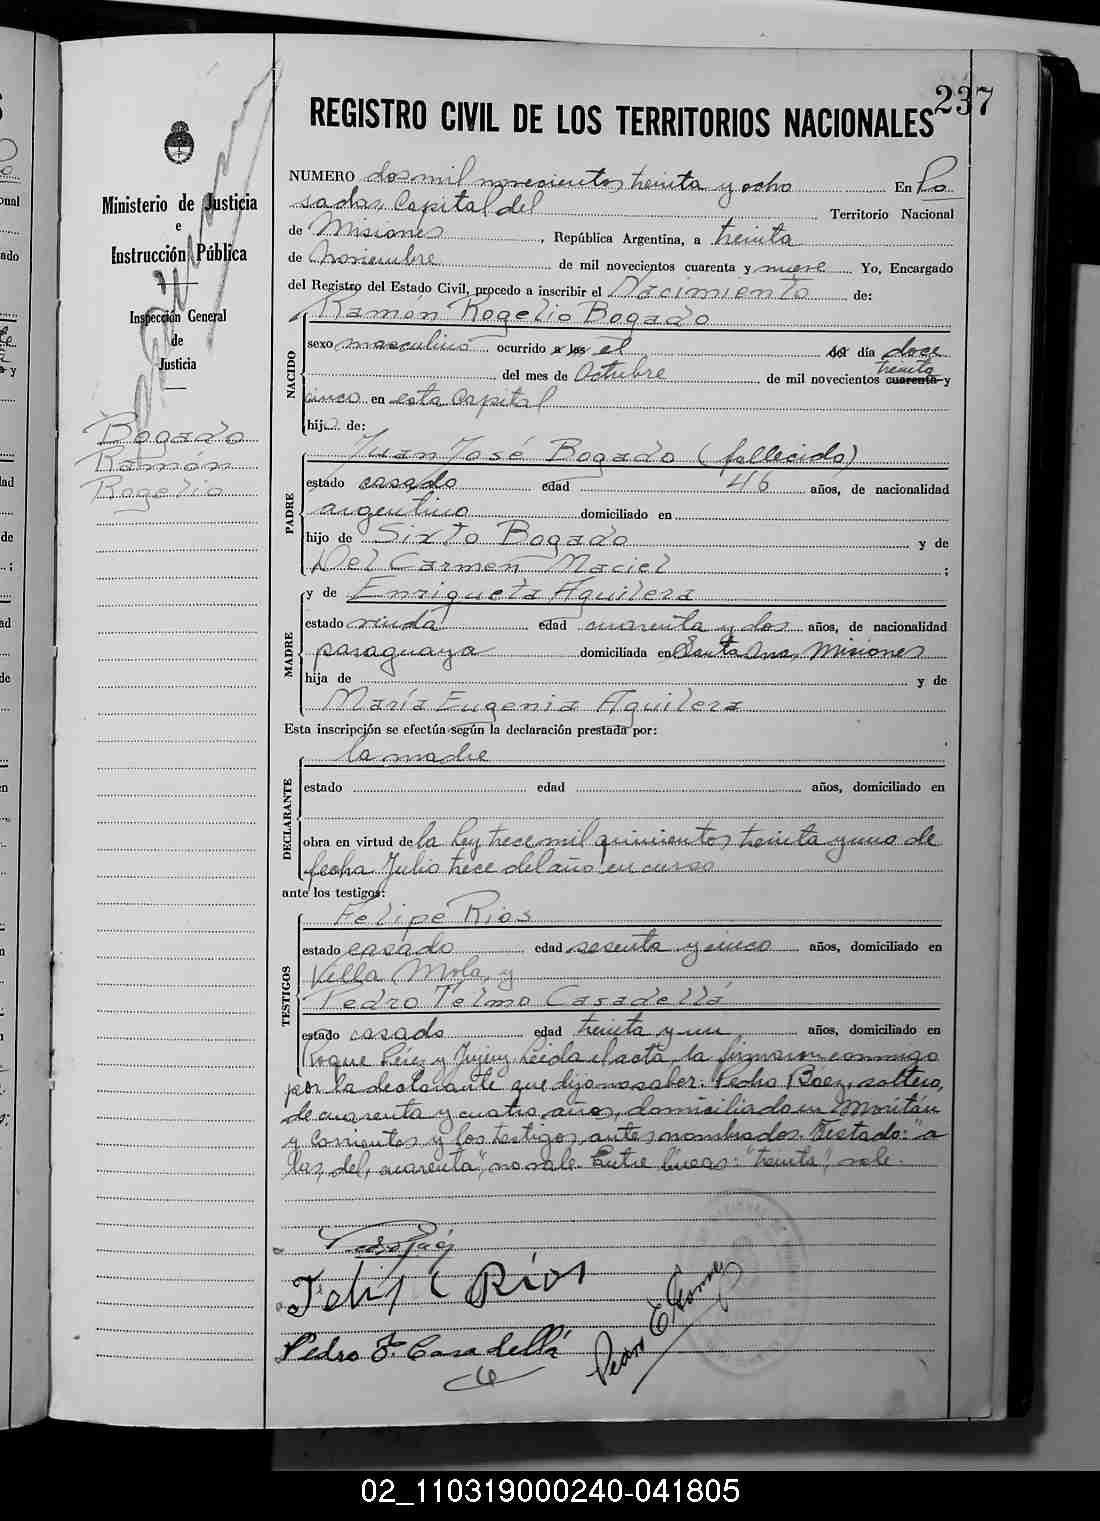 237
REGISTRO CIVIL DE LOS TERRITORIOS NACIONALES
Ministerio de Justicia
e
Instrucción Pública
Inspección General
de
Justicia
Bogado
Ramón
Rogelio
NUMERO dos mil novecientos treinta y ocho En Po
sadas, Capital del Territorio Nacional
de Misiones, República Argentina, a treinta
de Noviembre de mil novecientos cuarenta y nueve Yo, Encargado
del Registro del Estado Civil, procedo a inscribir el Nacimiento de:
NACIDO
Ramón Rogelio Bogado
sexo masculino ocurrido a las el del día doce
del mes de Octubre de mil novecientos cuarenta treinta y
cinco en esta Capital
hijo de:
PADRE
Juan José Bogado (fallecido)
estado casado edad 46 años, de nacionalidad
argentino domiciliado en
hijo de Sixto Bogado y de
Del Carmen Maciel ;
MADRE
y de Enriqueta Aguilera
estado viuda edad cuarenta y dos años, de nacionalidad
paraguaya domiciliada en Santa Ana, Misiones
hija de y de
María Eugenia Aguilera
Esta inscripción se efectúa según la declaración prestada por:
DECLARANTE
la madre
estado edad años, domiciliado en
obra en virtud de la Ley trece mil quinientos treinta y uno de
fecha Julio trece del año en curso
ante los testigos:
TESTIGOS
Felipe Rios
estado casado edad sesenta y cinco años, domiciliado en
Villa Mola, y
Pedro Telmo Casadellá
estado casado edad treinta y un años, domiciliado en
Roque Pérez y Jujuy. Leida el acta, la firmaron conmigo
por la declarante que dijo no saber: Pedro Báez, soltero,
de cuarenta y cuatro años, domiciliado en
y Corrientes y los testigos antes nombrados. Testado: "a
las, del, cuarenta", no vale. Entre líneas: "treinta", vale.
Pedro Báez
Felipe Rios
Pedro T. Casadellá
Pedro E.
02_110319000240-041805